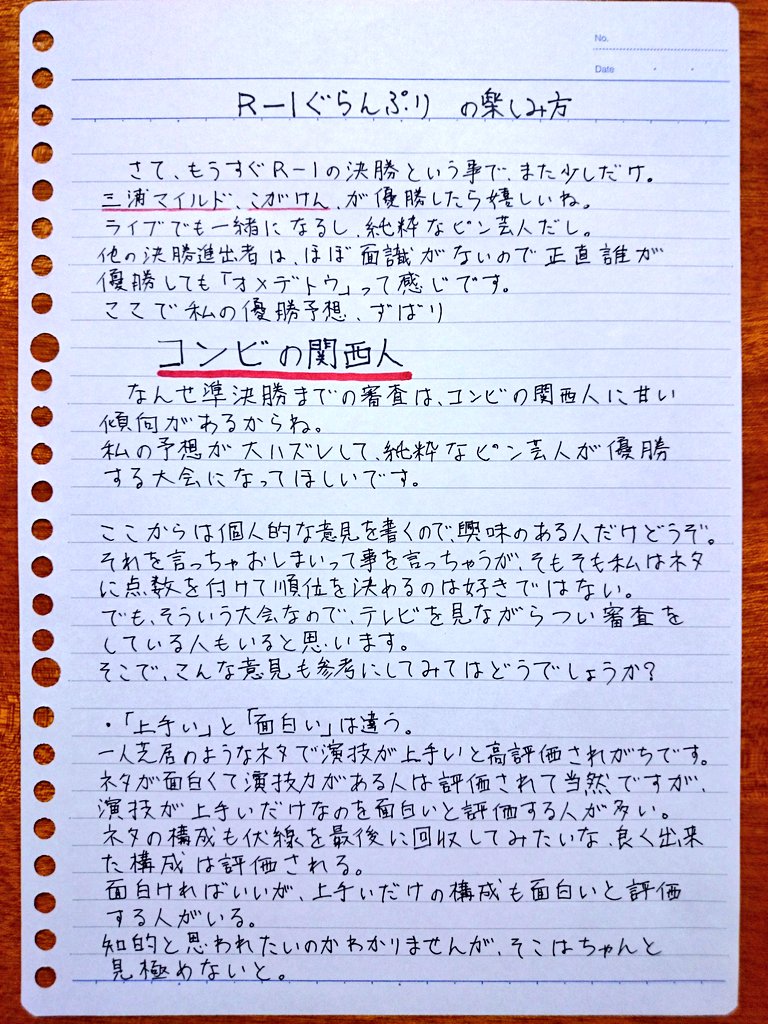 No.
Date
R-1ぐらんぷり の楽しみ方
さて、もうすぐR-1の決勝という事で、また少しだけ。
三浦マイルド、こがけん、が優勝したら嬉しいね。
ライブでも一緒になるし、純粋なピン芸人だし。
他の決勝進出者は、ほぼ面識がないので正直誰が
優勝しても「オメデトウ」って感じです。
ここで私の優勝予想、ずばり
コンビの関西人
なんせ準決勝までの審査は、コンビの関西人に甘い
傾向があるからね。
私の予想が大ハズレして、純粋なピン芸人が優勝
する大会になってほしいです。
ここからは個人的な意見を書くので、興味のある人だけどうぞ。
それを言っちゃおしまいって事を言っちゃうが、そもそも私はネタ
に点数を付けて順位を決めるのは好きではない。
でも、そういう大会なので、テレビを見ながらつい審査を
している人もいると思います。
そこで、こんな意見も参考にしてみてはどうでしょうか?
・「上手い」と「面白い」は違う。
一人芝居のようなネタで演技が上手いと高評価されがちです。
ネタが面白くて演技力がある人は評価されて当然ですが、
演技が上手いだけなのを面白いと評価する人が多い。
ネタの構成も伏線を最後に回収してみたいな、良く出来
た構成は評価される。
面白ければいいが、上手いだけの構成も面白いと評価
する人がいる。
知的と思われたいのかわかりませんが、そこはちゃんと
見極めないと。